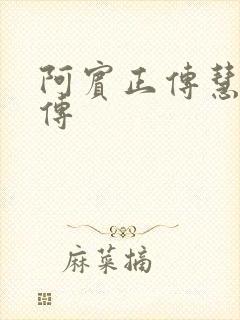 阿賓正傳慧
傳
麻菜摘